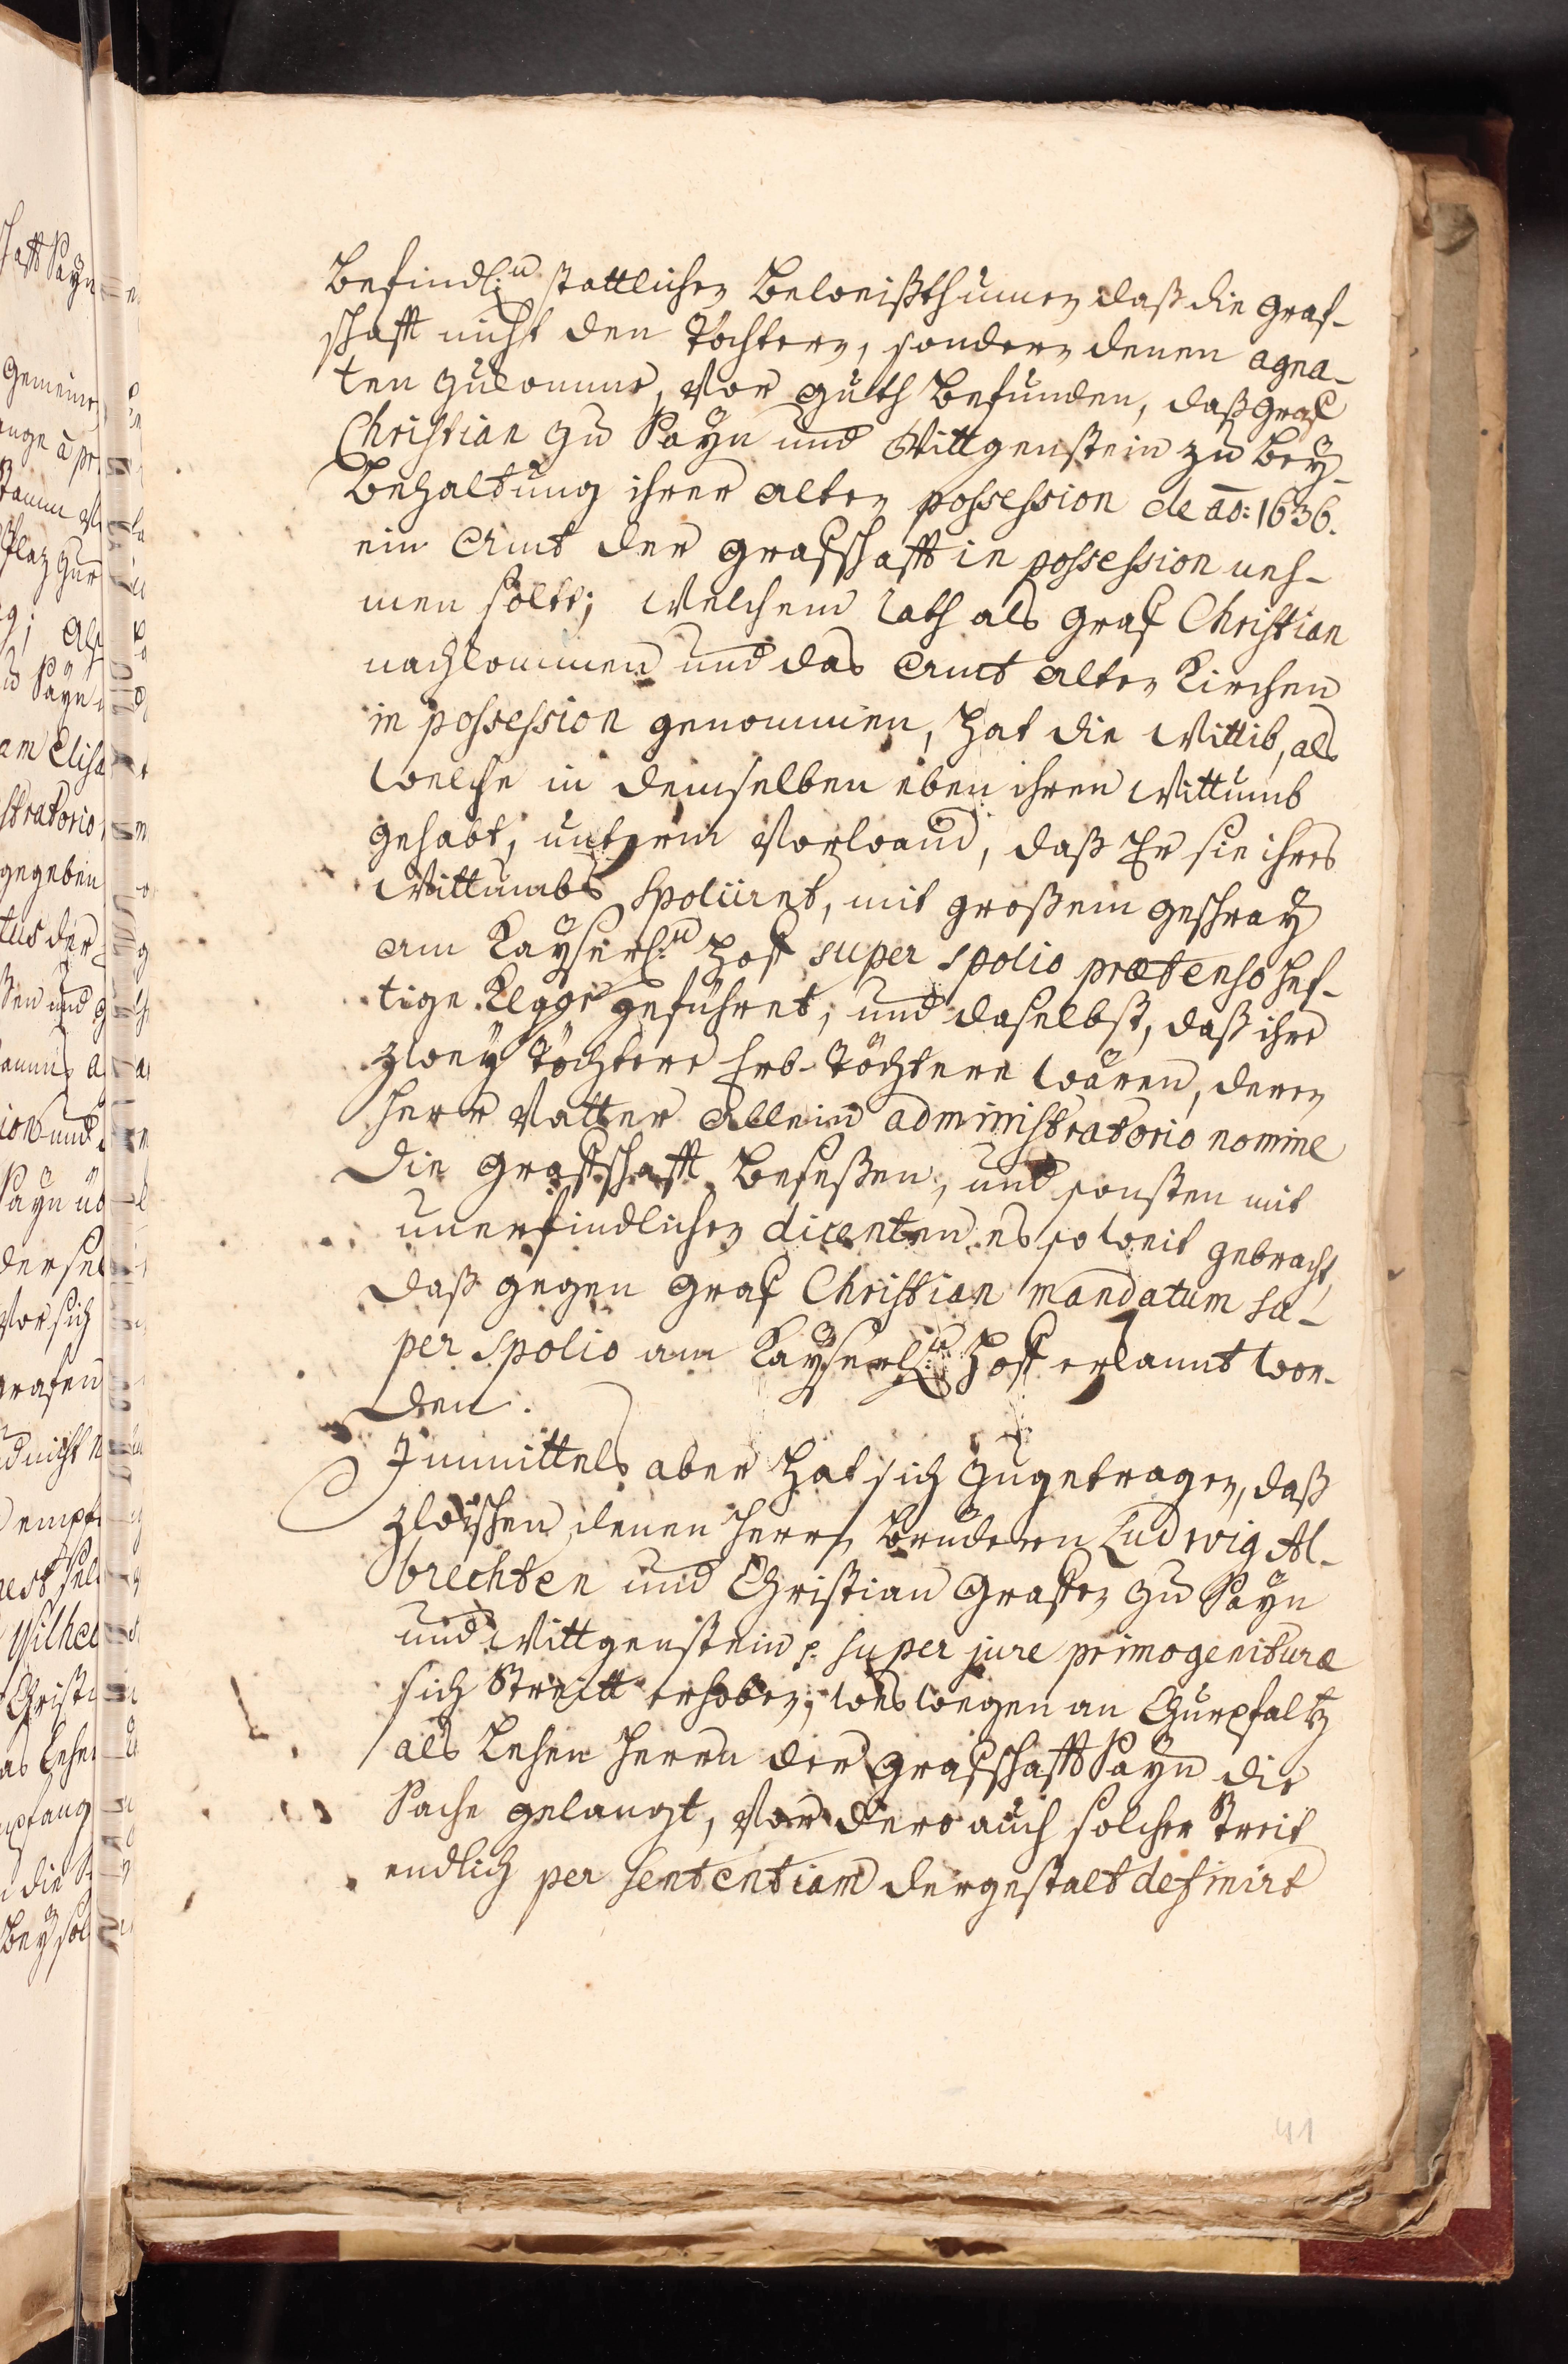 Befindl:n stattlichen Beweißthumen, daß die Graf-
schafft nicht den Töchtern, sondern denen agna-
ten zukomme, vor guth befunden, daß Graf
Christian zu Sayn und Wittgenstein zu Bey-
behaltung ihrer alten possession de ao: 1636.
ein Amt der Grafschafft in possession neh-
men solte; welchem rath als Graf Christian
nachkommen und das Amt Alten Kirchen
in possession genommen, hat die Wittib, als
welche in demselben eben ihren Wittumb
gehabt, unterm Vorwand, daß Er sie ihres
Wittumbs spoliiret, mit großem geschray
am Kayserl:n Hof super spolio prætenso hef-
tige Klage geführet; und daselbst, daß ihre
zwey Töchtere Erb-Töchtere wären, deren
Herr Vatter allein administratorio nomine
die Graffschafft beseßen, und sonsten mit
unerfindlichen dicenten es so weit gebracht,
daß gegen Graf Christian mandatum su-
per spolio am Kayserl:n Hoff erkannt wor-
den.
Immittels aber hat sich zugetragen, daß
zwischen denen Herrn Brüdern Ludwig Al-
brechten und Christian Graffen zu Sayn
und Wittgenstein p. super jure primogenituræ
sich Streitt erhoben; weswegen an Churpfaltz
als Lehen Herrn der Grafschafft Sayn die
Sache gelangt, vor dero auch solcher Streit
endlich per sententiam dergestalt definirt
41